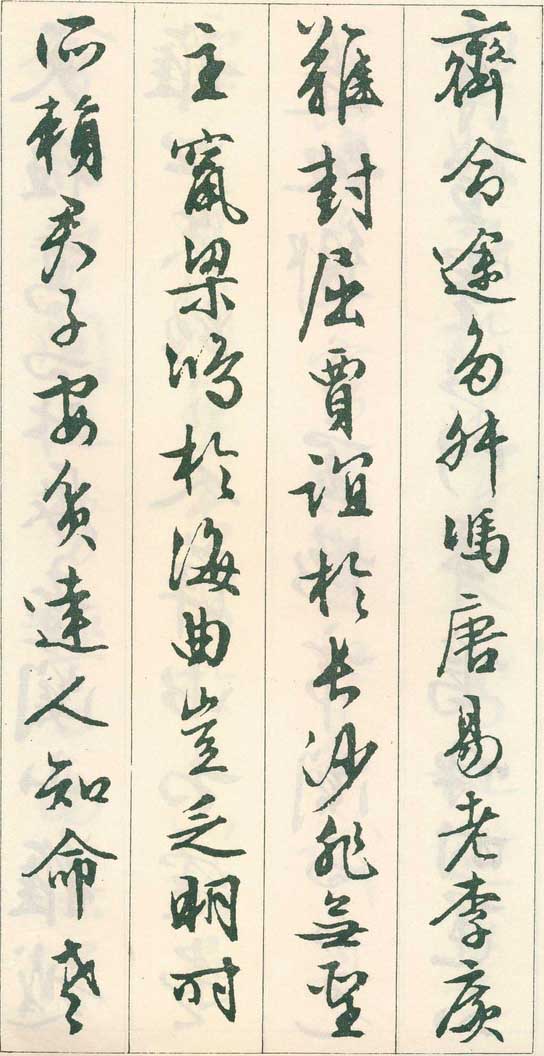 齊命途多舛馮唐易老李廣
難封屈賈誼於長沙非無聖
主竄梁鴻於海曲豈乏明時
所賴君子安貧達人知命老